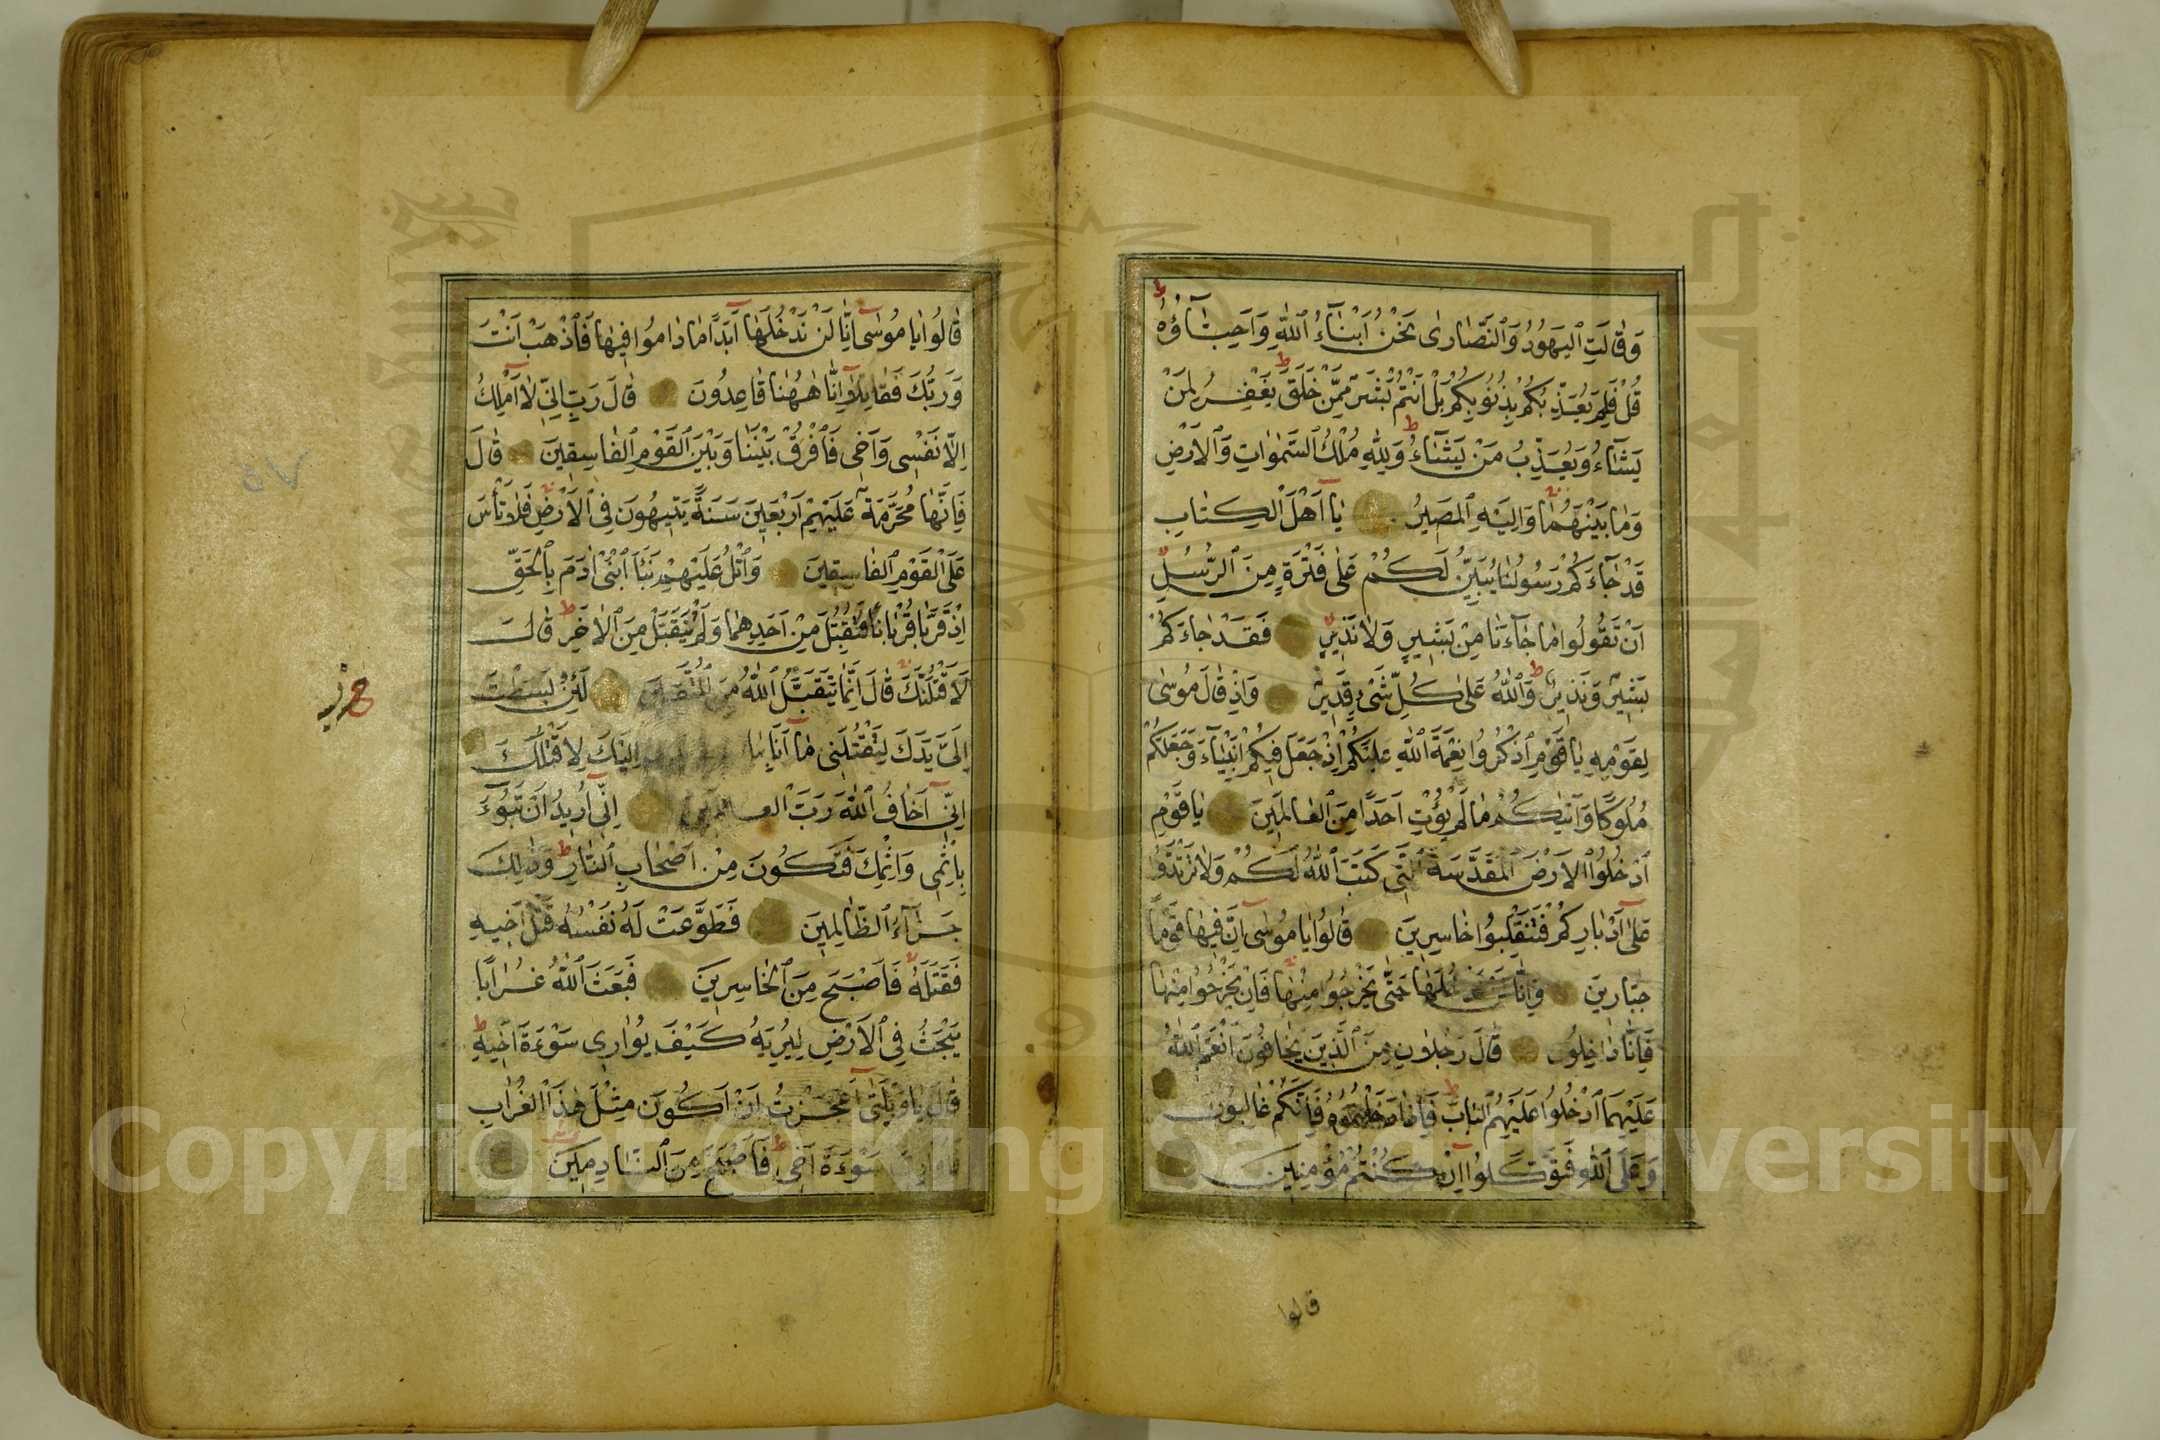 وَقَالَتِ الْيَهُودُ وَالنَّصَارٰى نَحْنُ اَبْنَاۤءُ اللّٰهِ وَاَحِبَّاۤؤُهُ ط
قُلْ فَلِمَ يُعَذِّبُكُمْ بِذُنُوبِكُمْ بَلْ اَنْتُمْ بَشَرٌ مِمَّنْ خَلَقَ ط يَغْفِرُ لِمَنْ
يَشَاۤءُ وَيُعَذِّبُ مَنْ يَشَاۤءُ ط وَلِلّٰهِ مُلْكُ السَّمٰوَاتِ وَالْاَرْضِ
وَمَا بَيْنَهُمَا وَاِلَيْهِ الْمَصِيرُ يَاۤ اَهْلَ الْكِتَابِ
قَدْ جَاۤءَكُمْ رَسُولُنَا يُبَيِّنُ لَكُمْ عَلٰى فَتْرَةٍ مِنَ الرُّسُلِ
اَنْ تَقُولُوا مَا جَاۤءَنَا مِنْ بَشِيرٍ وَلَا نَذِيرٍ فَقَدْ جَاءَكُمْ
بَشِيرٌ وَنَذِيرٌ ط وَاللّٰهُ عَلٰى كُلِّ شَىْءٍ قَدِيرٌ وَاِذْ قَالَ مُوسٰى
لِقَوْمِهِ يَا قَوْمِ اذْكُرُوا نِعْمَةَ اللّٰهِ عَلَيْكُمْ اِذْ جَعَلَ فِيكُمْ اَنْبِيَاۤءَ وَجَعَلَكُمْ
مُلُوكًا وَاٰتٰيكُمْ مَا لَمْ يُؤْتِ اَحَدًا مِنَ الْعَالَمِينَ يَا قَوْمِ
ادْخُلُوا الْاَرْضَ الْمُقَدَّسَةَ الَّتِى كَتَبَ اللّٰهُ لَكُمْ وَلَا تَرْتَدُّوا
عَلٰۤى اَدْبَارِكُمْ فَتَنْقَلِبُوا خَاسِرِينَ قَالُوا يَا مُوسٰۤى اِنَّ فِيهَا قَوْمًا
جَبَّارِينَ وَاِنَّا لَنْ نَدْخُلَهَا حَتّٰى يَخْرُجُوا مِنْهَا فَاِنْ يَخْرُجُوا مِنْهَا
فَاِنَّا دَاخِلُونَ قَالَ رَجُلَانِ مِنَ الَّذِينَ يَخَافُونَ اَنْعَمَ اللّٰهُ
عَلَيْهِمَا ادْخُلُوا عَلَيْهِمُ الْبَابَ ط فَاِذَا دَخَلْتُمُوهُ فَاِنَّكُمْ غَالِبُونَ
وَعَلَى اللّٰهِ فَتَوَكَّلُوۤا اِنْ كُنْتُمْ مُؤْمِنِينَ
قالوا
قَالُوا يَا مُوسٰۤى اِنَّا لَنْ نَدْخُلَهَاۤ اَبَدًا مَا دَامُوا فِيهَا فَاذْهَبْ اَنْتَ
وَرَبُّكَ فَقَاتِلَاۤ اِنَّا هٰهُنَا قَاعِدُونَ قَالَ رَبِّ اِنِّى لَاۤ اَمْلِكُ
اِلَّا نَفْسِى وَاَخِى فَافْرُقْ بَيْنَنَا وَبَيْنَ الْقَوْمِ الْفَاسِقِينَ قَالَ
فَاِنَّهَا مُحَرَّمَةٌ عَلَيْهِمْ اَرْبَعِينَ سَنَةً يَتِيهُونَ فِى الْاَرْضِ فَلَا تَأْسَ
عَلَى الْقَوْمِ الْفَاسِقِينَ وَاتْلُ عَلَيْهِمْ نَبَاَ ابْنَىْ اٰدَمَ بِالْحَقِّ
اِذْ قَرَّبَا قُرْبَانًا فَتُقُبِّلَ مِنْ اَحَدِهِمَا وَلَمْ يُتَقَبَّلْ مِنَ الْاٰخَرِ ط قَالَ
لَاَقْتُلَنَّكَ قَالَ اِنَّمَا يَتَقَبَّلُ اللّٰهُ مِنَ الْمُتَّقِينَ لَئِنْ بَسَطْتَ
اِلَىَّ يَدَكَ لِتَقْتُلَنِى مَاۤ اَنَا اِلَيْكَ لِاَقْتُلَكَ
اِنِّىۤ اَخَافُ اللّٰهَ رَبَّ الْعَالَمِينَ اِنِّىۤ اُرِيدُ اَنْ تَبُوۤءَ
بِاِثْمِى وَاِثْمِكَ فَتَكُونَ مِنْ اَصْحَابِ النَّارِ ط وَذٰلِكَ
جَزَاۤءُ الظَّالِمِينَ فَطَوَّعَتْ لَهُ نَفْسُهُ قَتْلَ اَخِيهِ
فَقَتَلَهُ فَاَصْبَحَ مِنَ الْخَاسِرِينَ فَبَعَثَ اللّٰهُ غُرَابًا
يَبْحَثُ فِى الْاَرْضِ لِيُرِيَهُ كَيْفَ يُوَارِى سَوْءَةَ اَخِيهِ ط
قَالَ يَا وَيْلَتٰۤى اَعَجَزْتُ اَنْ اَكُونَ مِثْلَ هٰذَا الْغُرَابِ
فَاُوَارِىَ سَوْءَةَ اَخِى ط فَاَصْبَحَ مِنَ النَّادِمِينَ
حزب
٥٧
Copyright © King Saud University